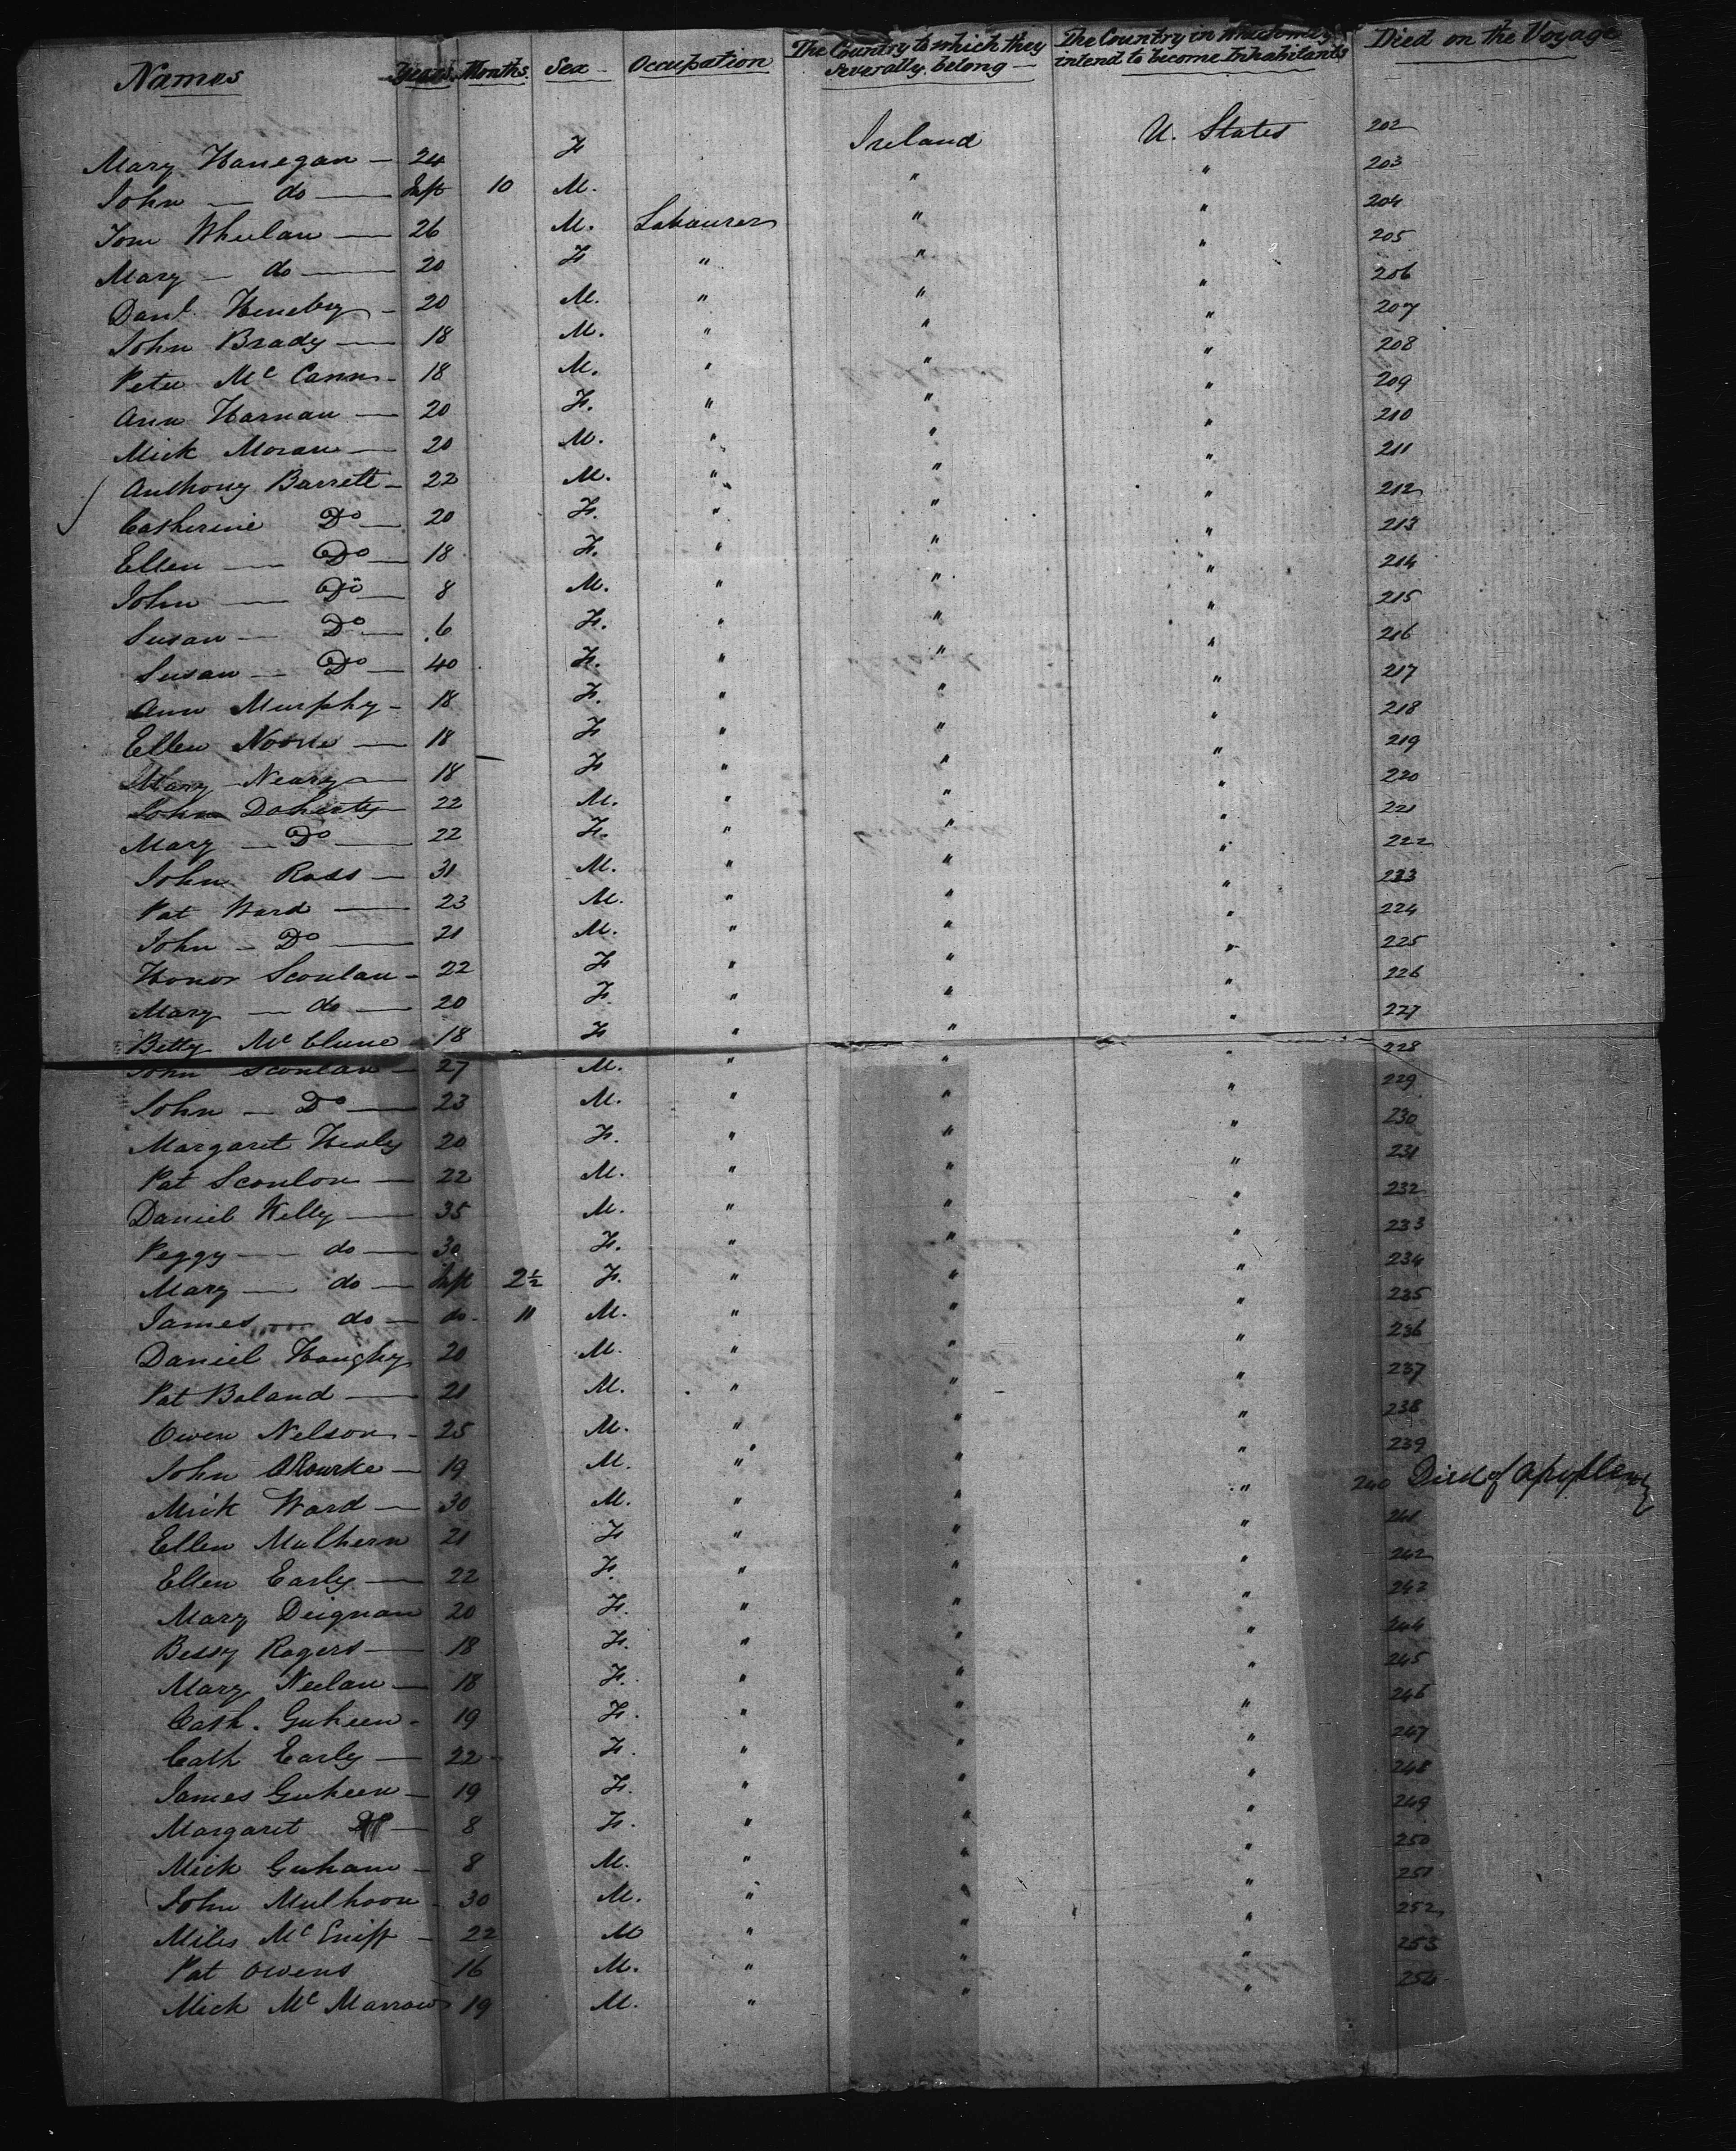 Names Years Months Sex Occupation The Country to which they severally belong The Country in which they intend to become Inhabitants Died on the Voyage
Mary Hanegan — 24 F Ireland U. States 202
John — do — Inft 10 M. " " 203
Tom Whelan — 26 M. Labourer " " 204
Mary — do — 20 F " " " 205
Danl. Heneby - 20 M. " " " 206
John Brady — 18 M. " " " 207
Peter Mc Cann - 18 M. " " " 208
Ann Harnan — 20 F. " " " 209
Mick Moran — 20 M. " " " 210
Anthony Barrett - 22 M. " " " 211
Catherine Do — 20 F. " " " 212
Ellen — Do — 18 F. " " " 213
John — Do — 8 M. " " " 214
Susan — Do — 6 F. " " " 215
Susan — Do — 40 F. " " " 216
Ann Murphy - 18 F. " " " 217
Ellen Noone — 18 F " " " 218
Mary Neary — 18 F " " " 219
John Doherty — 22 M. " " " 220
Mary — Do — 22 F. " " " 221
John Ross — 31 M. " " " 222
Pat Ward — 23 M. " " " 223
John — Do — 21 M. " " " 224
Honor Scanlan - 22 F " " " 225
Mary — do — 20 F. " " " 226
Betty Mc Clune 18 F " " " 227
John Scanlan — 27 M. " " " 228
John — Do — 23 M. " " " 229
Margaret Healy 20 F. " " " 230
Pat Scanlon — 22 M. " " " 231
Daniel Kelly — 35 M. " " " 232
Peggy — do — 30 F. " " " 233
Mary — do — Inft 2½ F. " " " 234
James — do — do - 11 M. " " " 235
Daniel Haughy 20 M. " " " 236
Pat Boland — 21 M. " " " 237
Owen Nelson - 25 M. " " " 238
John ORourke — 19 M. " " " 239
Mick Ward — 30 M. " " " 240 Died of Apoplexy
Ellen Mulhern 21 F " " " 241
Ellen Early — 22 F. " " " 242
Mary Deignan 20 F. " " " 243
Bessy Rogers — 18 F. " " " 244
Mary Neelan — 18 F. " " " 245
Cath. Guheen - 19 F. " " " 246
Cath Early — 22 F. " " " 247
James Guheen — 19 F. " " " 248
Margaret Do — 8 F. " " " 249
Mick Guham - 8 M. " " " 250
John Mulhoon - 30 M. " " " 251
Miles Mc Eniff - 22 M " " " 252
Pat Owens 16 M. " " " 253
Mick Mc Marrow 19 M. " " " 254